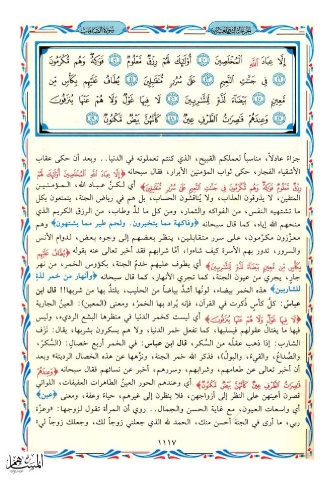 إِلَّا عِبَادَ اللَّهِ الْمُخْلَصِينَ ﴿٤٠﴾ أُوْلَٰئِكَ لَهُمْ رِزْقٌ مَّعْلُومٌ ﴿٤١﴾ فَوَاكِهُ وَهُم مُّكْرَمُونَ
﴿٤٢﴾ فِي جَنَّاتِ النَّعِيمِ ﴿٤٣﴾ عَلَىٰ سُرُرٍ مُّتَقَابِلِينَ ﴿٤٤﴾ يُطَافُ عَلَيْهِم بِكَأْسٍ مِّن
مَّعِينٍ ﴿٤٥﴾ بَيْضَاءَ لَذَّةٍ لِّلشَّارِبِينَ ﴿٤٦﴾ لَا فِيهَا غَوْلٌ وَلَا هُمْ عَنْهَا يُنزَفُونَ
﴿٤٧﴾ وَعِندَهُمْ قَاصِرَاتُ الطَّرْفِ عِينٌ ﴿٤٨﴾ كَأَنَّهُنَّ بَيْضٌ مَّكْنُونٌ ﴿٤٩﴾
جزاءً عادلاً، مناسباً لعملكم القبيح، الذي كنتم تعملونه في الدنيا.. وبعد أن حكى عقاب
الأشقياء الفجار، حكى ثواب المؤمنين الأبرار، فقال سبحانه ﴿إِلَّا عِبَادَ اللَّهِ الْمُخْلَصِينَ أُوْلَٰئِكَ لَهُمْ
رِزْقٌ مَّعْلُومٌ فَوَاكِهُ وَهُم مُّكْرَمُونَ فِي جَنَّاتِ النَّعِيمِ عَلَىٰ سُرُرٍ مُّتَقَابِلِينَ﴾ أي لكنَّ عباد الله، المؤمنين
المتقين، لا يذوقون العذاب، ولا يُناقشون الحساب، بل هم في رياض الجنة، يتمتعون بكل
ما تشتهيه النفس، من الفواكه والثمار، ومن كل ما لذَّ وطاب، من الرزق الكريم الذي
منحهم الله إياه، كما قال سبحانه ﴿وفاكهة مما يتخيرون. ولحم طير مما يشتهون﴾ وهم
معزَّزون مكرَّمون، على سرر متقابلين، ينظر بعضهم إلى وجوه بعض، لدوام الأنس
والسرور، تدور بهم الأسرة كيف شاءوا، أمَّا شرابهم فقد أخبر تعالى عنه بقوله ﴿يُطَافُ عَلَيْهِم
بِكَأْسٍ مِّن مَّعِينٍ بَيْضَاءَ لَذَّةٍ لِّلشَّارِبِينَ﴾ أي يطوف عليهم خدمُ الجنة، بكؤوس الخمر، من نهرٍ
جارٍ، يجري من عيون الجنة، كما تجري الأنهار، كما قال سبحانه ﴿وأنهار من خمر لذةٍ
للشاربين﴾ هذه الخمر بيضاء، لونُها أشدُّ بياضاً من الحليب، يلتذُّ بها من شربها!! قال ابن
عباس: كلُّ كأسٍ ذُكرت في القرآن، فإنه يُراد بها الخمرُ، ومعنى (المعين): العينُ الجارية
﴿لَا فِيهَا غَوْلٌ وَلَا هُمْ عَنْهَا يُنزَفُونَ﴾ أي ليست كخمر الدنيا في منظرها البشع الرديء، وليس
فيها ما يغتال عقولهم فيسلبها، كما تفعل خمر الدنيا، ولا هم يسكرون بشربها، يقال: نَزَف
الشاربُ: إذا ذهب عقلُه من السكر، قال ابن عباس: في الخمر أربع خصال: (السُّكر،
والصُّداع، والقيءُ، والبولُ)، فذكر الله خمر الجنة، ونزَّهها عن هذه الخصال الرديئة وبعد
أن أخبر تعالى عن طعامهم، وشرابهم، وسررهم، أخبر عن نسائهم فقال سبحانه ﴿وَعِندَهُمْ
قَاصِرَاتُ الطَّرْفِ عِينٌ كَأَنَّهُنَّ بَيْضٌ مَّكْنُونٌ﴾ أي وعندهم الحور العينُ الطاهراتُ العفيفات، اللواتي
قصرن أعينهن على النظر إلى أزواجهن، فلا ينظرن إلى غيرهم، حياءً وعفة، ومعنى ﴿عين﴾
أي واسعات العيون، مع غاية الحسن والجمال.. روي أن المرأة تقول لزوجها: «وعزَّةِ
ربي، ما أرى في الجنة أحسن منك، الحمد لله الذي جعلني زوجاً لك، وجعلك زوجاً لي»
١١١٧